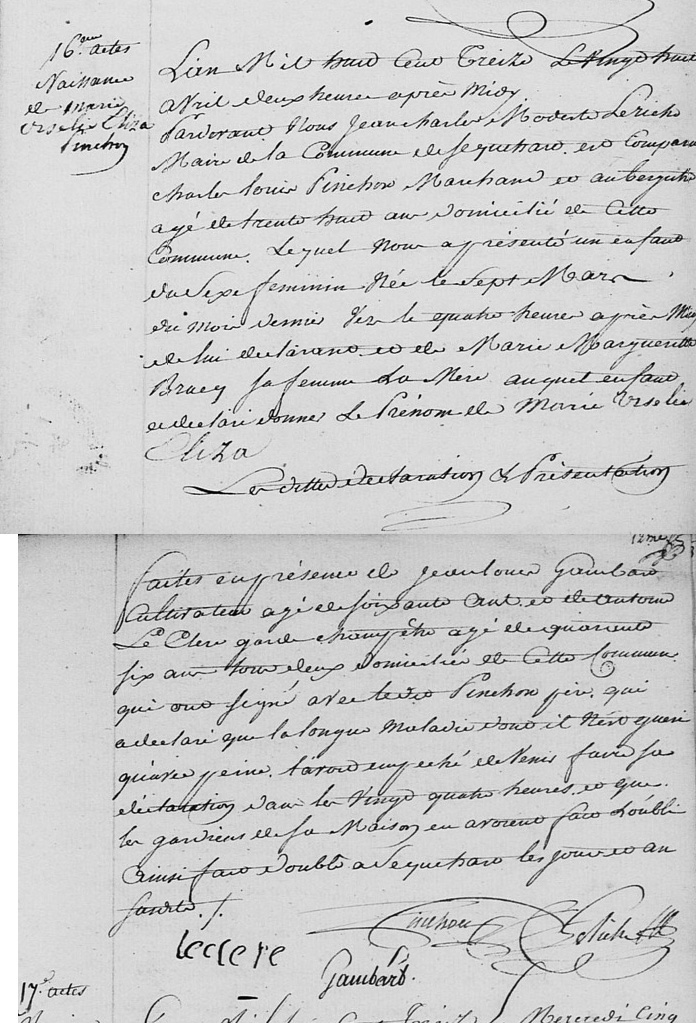 16.eme actes
Naissance
de marie
Urselie Eliza
Pinchon
L'an Mil huit Cent Treize Le Vingt huit
avril deux heures après Midy
Pardevant Nous Jean charles Modeste Leriche
Maire de la Commune de Sequehart. est Comparu
charles louis Pinchon Marchand et aubergiste
agé de trente huit ans domicilié de Cette
Commune. Lequel Nous a présenté un enfant
du Sexe feminin Née le Sept Mars
du mois dernier Vers le quatre heures après Midy
de lui déclarant. et de Marie Margueritte
Bracq sa femme La Mère auquel enfant
a declaré donner Le Prénom de Marie Urselie
Eliza
Les dittes déclaration & Présentation
faites en présence de Jean louis Gambart
Cultivateur agé de soixante ans. et de antoine
Le Clere garde champêtre agé de quarente
six ans tous deux domicilié de Cette Commune.
qui ont signé avec ledit Pinchon père. qui
a declaré que la longue Maladie dont il N'est gueri
qu'avec peine. l'avoit empeché de Venir faire sa
déclaration dans les Vingt quatre heures. et que
les gardiens de sa Maison en avoient fait L'oubli
Ainsi fait double a Sequehart les jour et an
susdits ./.
Pinchon
Leriche
leclere
Gambart.
17.e actes
Mercredi Cinq